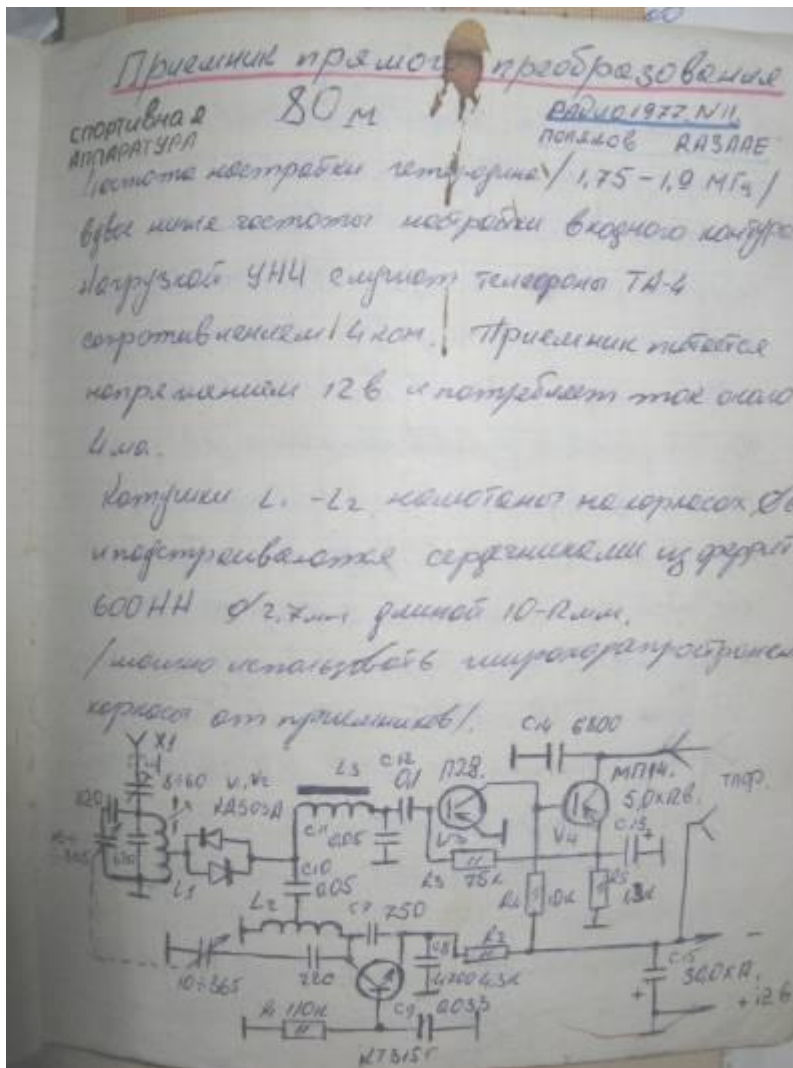 Приемник прямого преобразования
80 м
спортивная
АППАРАТУРА
РАДИО 1977. N 11.
ПОЛЯКОВ RA3AAE
Частота настройки гетеродина / 1,75 - 1,9 МГц /
вдвое ниже частоты настройки входного контура
Нагрузкой УНЧ служат телефоны ТА-4
сопротивлением 4 ком. Приемник питается
напряжением 12 в и потребляет ток около
4 ма.
Катушки L1 - L2 намотаны на каркасах
и подстраиваются сердечниками из феррит
600 НН ∅ 2,7 мм длиной 10-12 мм.
/ можно использовать широкораспространен
каркасы от приемников /.
C14 6800
X1
8÷60
V1, V2
КД503А
L3
C12
0,1
П28.
МП14.
5,0х12в.
ТЛФ.
220
C11
0,05
V3
V4
C13
+
L1
C10
0,05
R3
75к
R4
10к
R5
L2
C7 750
C8
4700
R2
4,3к
10÷365
220
C15
+
-
+12 в
R1 110к
C9
0,033
КТ315Г